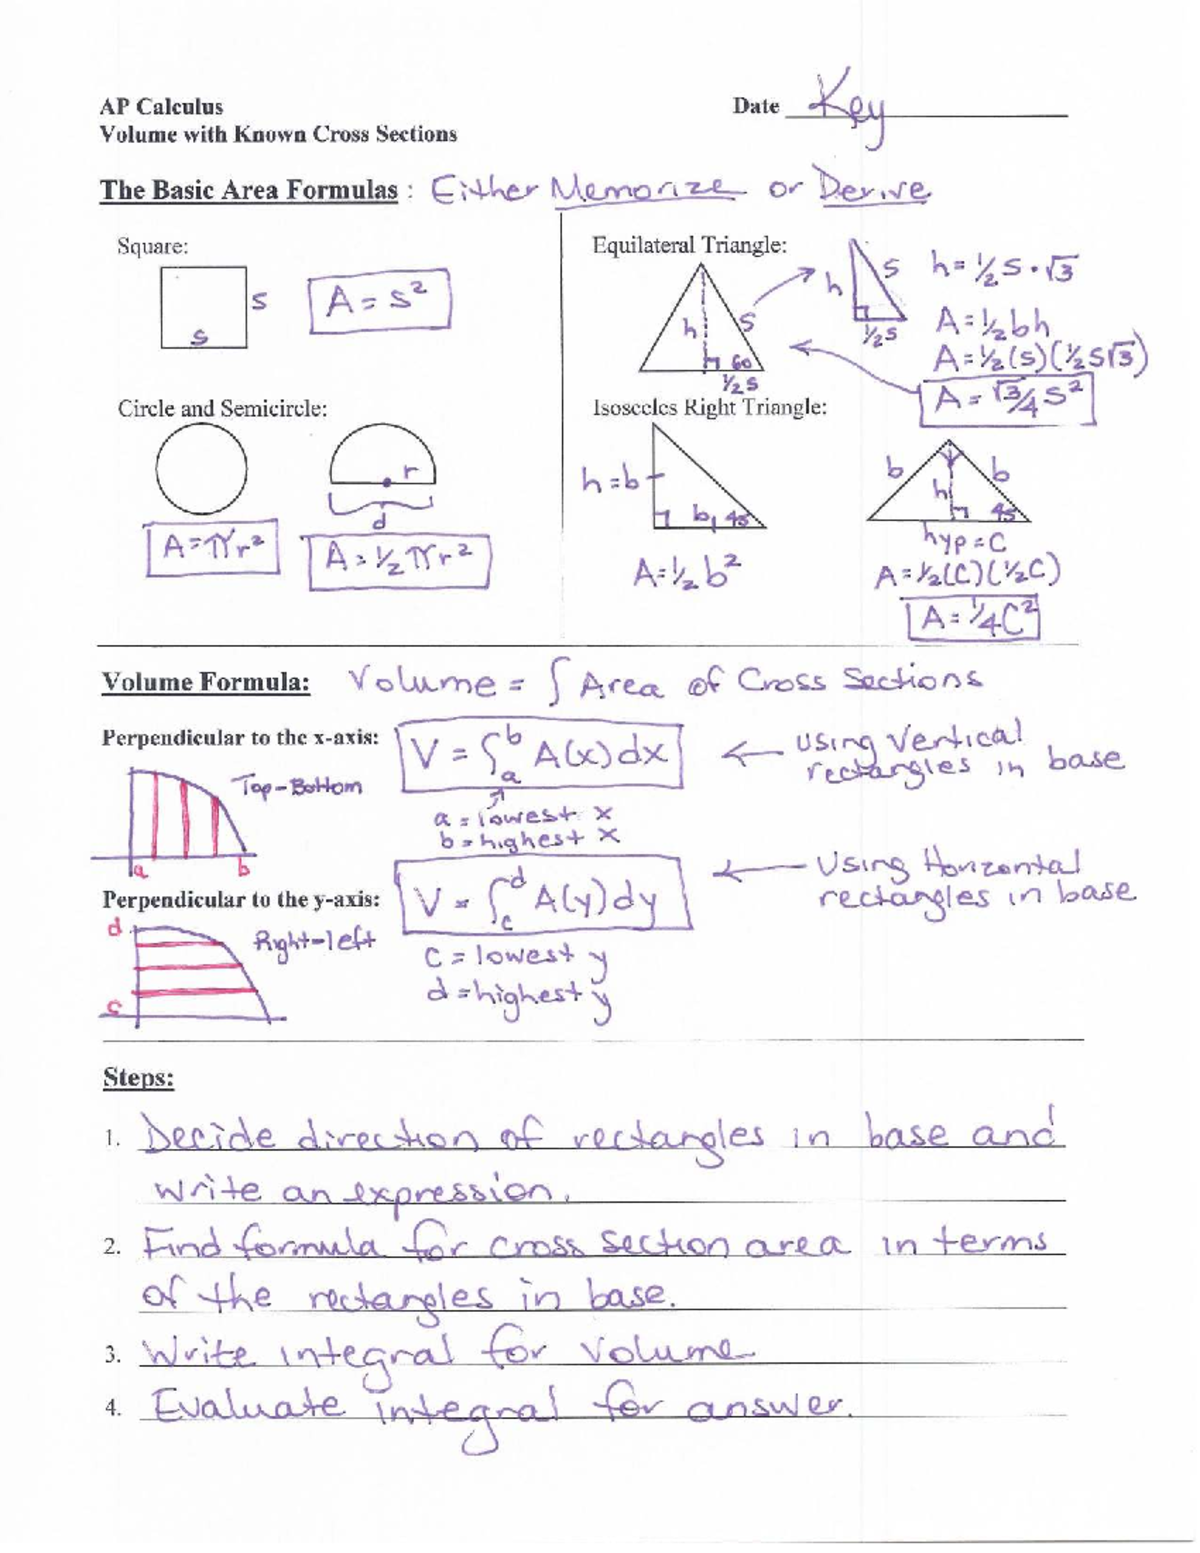 AP Calculus
Date Key
Volume with Known Cross Sections
The Basic Area Formulas : Either Memorize or Derive
Square:
s
s
A = s²
Equilateral Triangle:
h
s
60
½s
h
s
½s
h = ½s·√3
A = ½bh
A = ½(s)(½s√3)
A = √3/4 s²
Circle and Semicircle:
r
d
A = πr²
A = ½πr²
Isosceles Right Triangle:
h = b
b, 45
A = ½b²
b
b
h
45
hyp = C
A = ½(C)(½C)
A = ¼C²
Volume Formula: Volume = ∫ Area of Cross Sections
Perpendicular to the x-axis:
V = ∫ₐᵇ A(x)dx
← Using Vertical
rectangles in base
Top-Bottom
a
b
a = lowest x
b = highest x
Perpendicular to the y-axis:
V = ∫_c^d A(y)dy
← Using Horizontal
rectangles in base
d
Right-left
c
c = lowest y
d = highest y
Steps:
1. Decide direction of rectangles in base and
write an expression.
2. Find formula for cross section area in terms
of the rectangles in base.
3. Write integral for volume
4. Evaluate integral for answer.